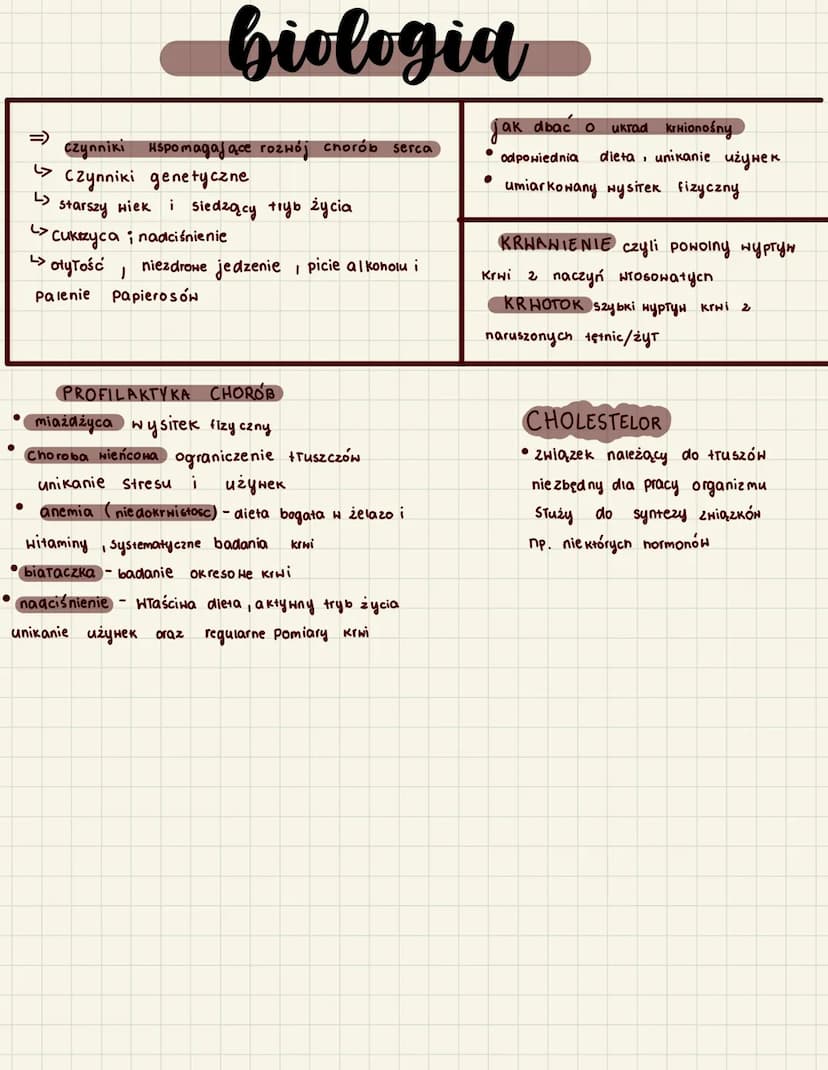 biologia
⇒ czynniki wspomagające rozwój chorób serca
↳ Czynniki genetyczne
↳ starszy wiek i siedzący tryb życia
↳ cukrzyca i nadciśnienie
↳ otyłość , niezdrowe jedzenie , picie alkoholu i
palenie papierosów
jak dbać o układ krwionośny
• odpowiednia dieta , unikanie używek
• umiarkowany wysiłek fizyczny
KRWAWIENIE czyli powolny wypływ
krwi z naczyń włosowatych
KRWOTOK szybki wypływ krwi z
naruszonych tętnic/żył
PROFILAKTYKA CHORÓB
• miażdżyca wysiłek fizyczny
• choroba wieńcowa ograniczenie tłuszczów
unikanie stresu i używek
• anemia (niedokrwistość) - dieta bogata w żelazo i
witaminy , systematyczne badania krwi
• białaczka - badanie okresowe krwi
• nadciśnienie - właściwa dieta , aktywny tryb życia
unikanie używek oraz regularne pomiary krwi
CHOLESTELOR
• związek należący do tłuszów
niezbędny dla pracy organizmu
służy do syntezy związków
np. niektórych hormonów